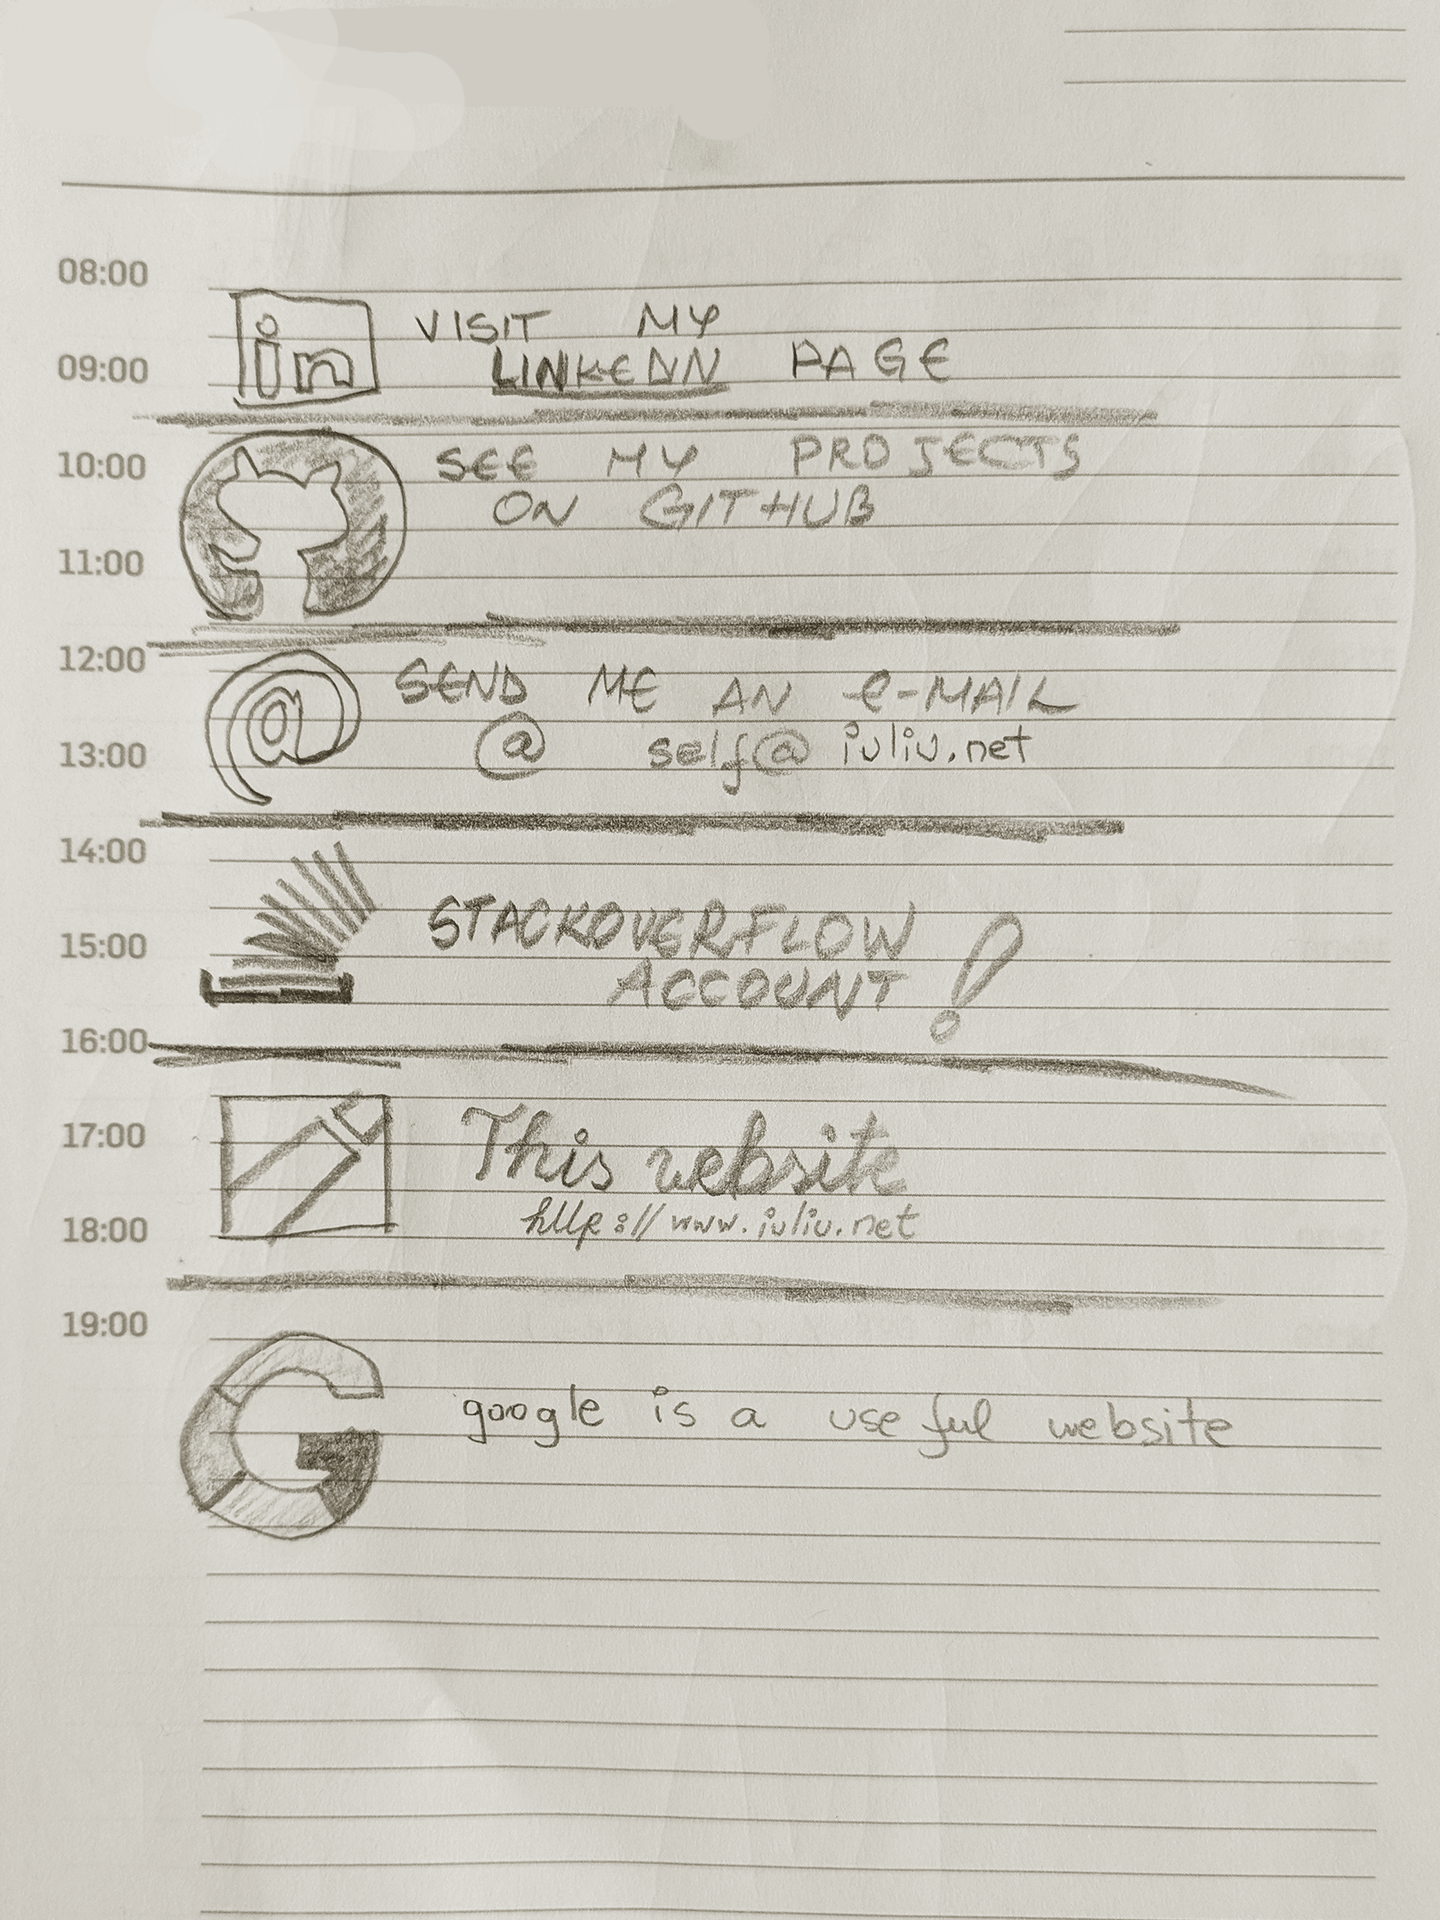 08:00
in VISIT MY
09:00 LINKEDIN PAGE
10:00 SEE MY PROJECTS
ON GITHUB
11:00
12:00 @ SEND ME AN e-MAIL
13:00 @ self@iuliu.net
14:00
15:00 STACKOVERFLOW
ACCOUNT !
16:00
17:00 This website
18:00 http://www.iuliu.net
19:00
G google is a useful website